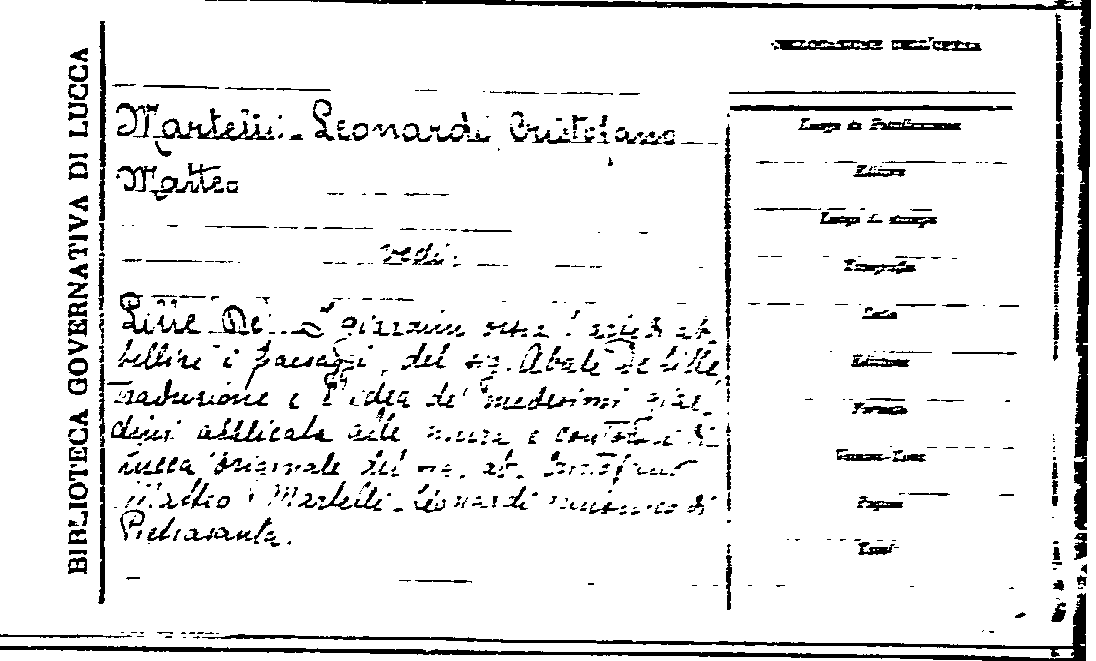 BIBLIOTECA GOVERNATIVA DI LUCCA
Martelli-Leonardi Cristofano
Matteo
vedi:
Lille De I giardini ossia l'arte di ab-
bellire i paesaggi, del sig. Abate De Lille,
traduzione e l'idea de' medesimi giar-
dini applicata alle mura e contorni di
Lucca originale del sig. ab. Cristofano
Matteo Martelli-Leonardi di
Pietrasanta.
Luogo di Pubblicazione
Editore
Luogo di stampa
Tipografia
Data
Edizione
Formato
Pagine